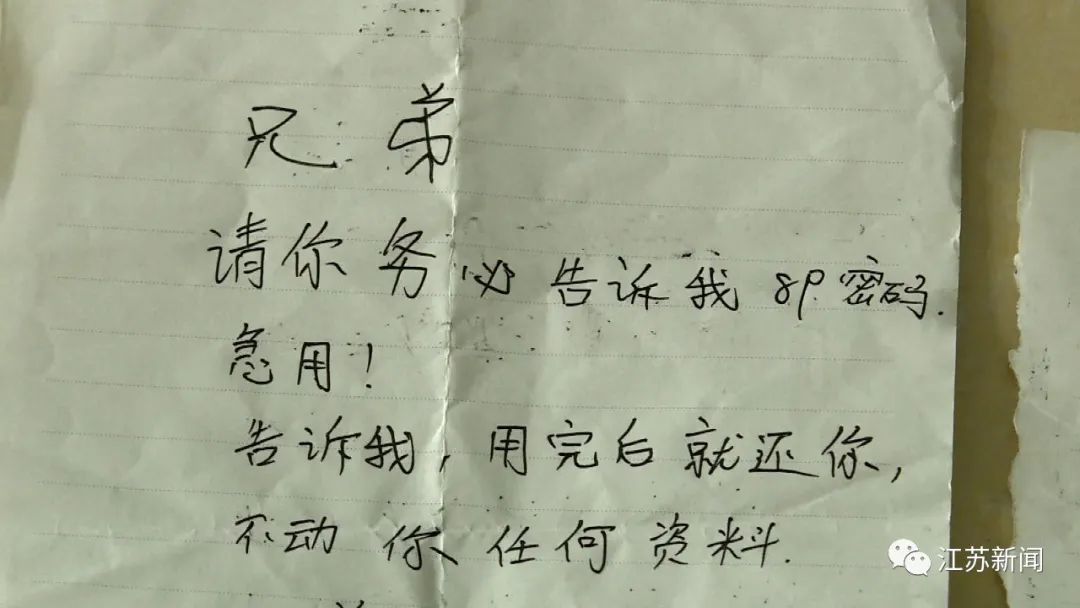 兄弟
请你务必告诉我8P密码.
急用!
告诉我,用完后就还你,
不动你任何资料.
江苏新闻